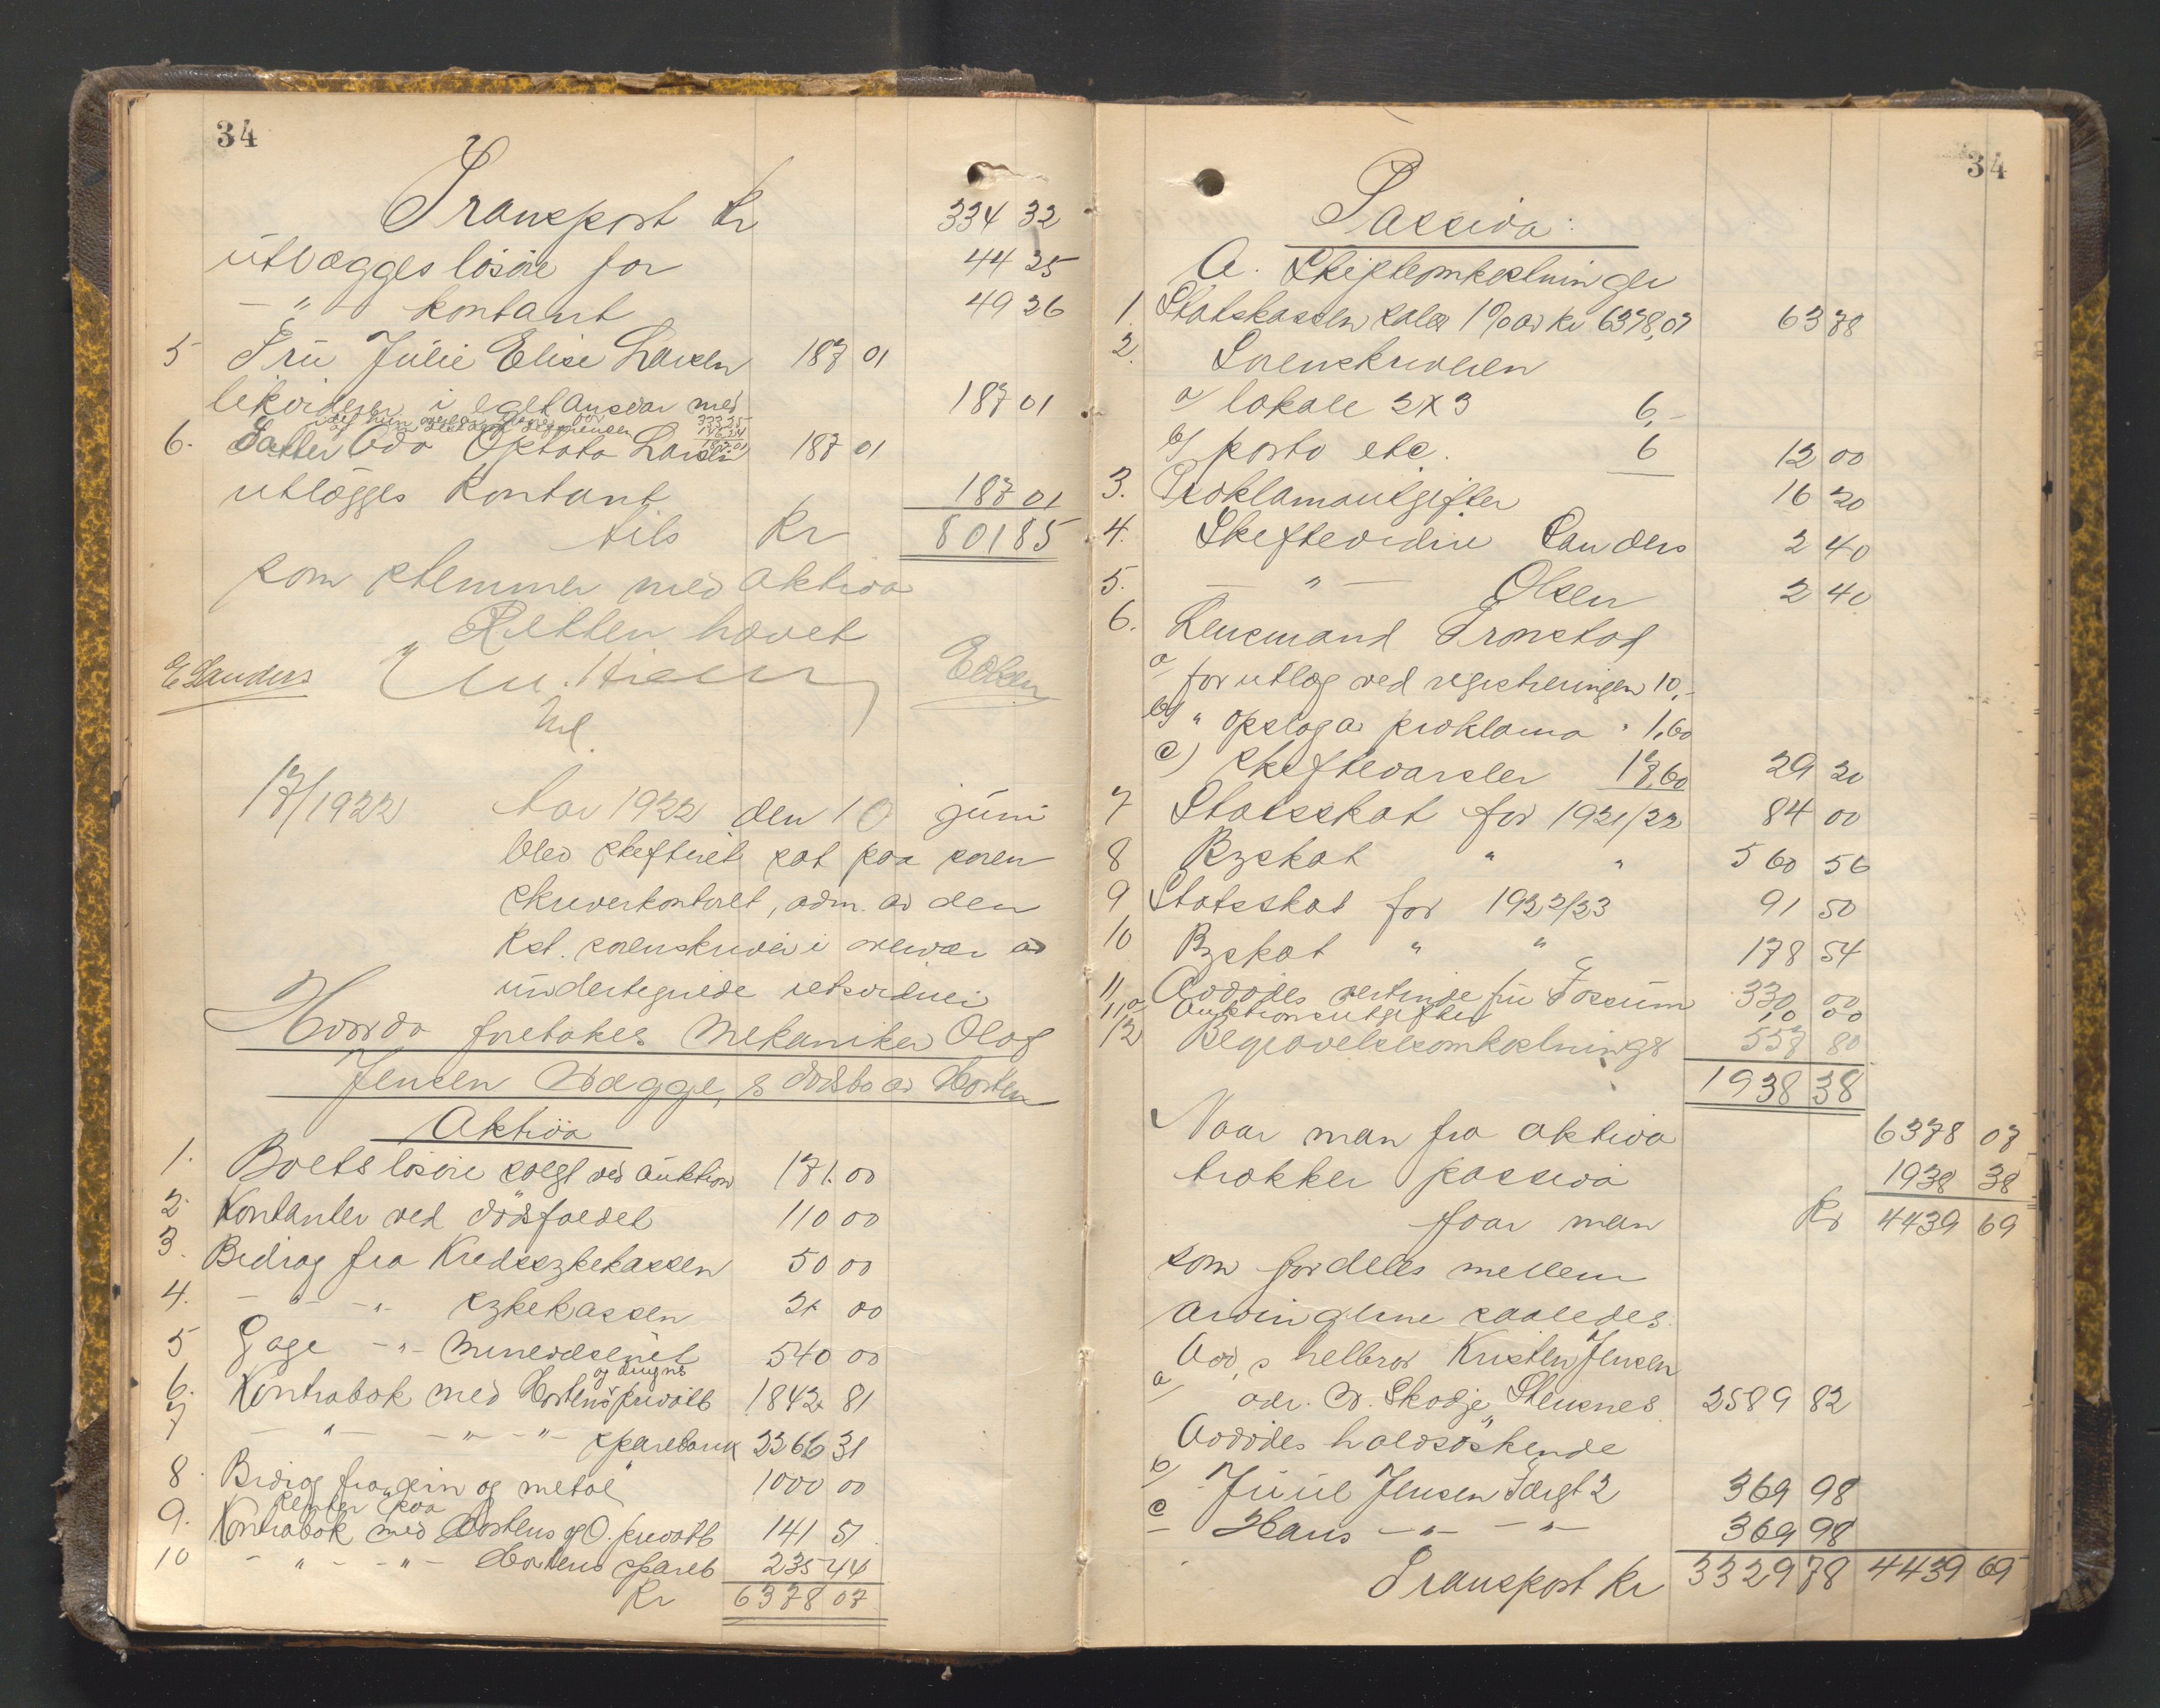 34
Transport kr 334 32
utlægges løsøre for 44 25
— " — kontant 49 26
5 Fru Julie Elise Larsen 187 01
likvideres i eget ansvar med 187 01
6. Datter Oda Optata Larsen 187 01
utlægges kontant 187 01
tils kr 801 85
som stemmer med aktiva
Retten hævet
E Sanders
EOlsen
17/1922 Aar 1922 den 10 juni
blev skifteret sat paa soren
skriverkontoret, adm. av den
kst. sorenskriver i nærvær av
undertegnede retsvidner
Hvorda foretokes mekaniker Olaf
Jensen Vægge, s dødsbo av Horten
Aktiva
1. Boets løsøre solgt ved auktion 171.00
2 Kontanter ved dødsfaldet 110 00
3. Bidrag fra Kredssykekassen 50 00
4. — " — " — sykekassen 21 00
5 Gage — " — minevæsenet 540 00
og omegns
6. Kontrabok med Hortens privatb 1842 81
7 — " — — " — " — sparebank 2266 31
8. Bidrag fra "jern og metal" 1000 00
renter paa
9. Kontrabok med Hortens og O. privatb 141 51
10 — " — — " — Hortens spareb 235 44
Kr 6378 07
34
Passiva:
A. Skifteomkostninger
1. Statskassen salær 1% av kr 6378,07 63 78
2. Sorenskriveren
a/ lokale 2 X 3 6,-
b/ porto etc. 6 12 00
3. Proklamautgifter 16 20
4. Skiftevidne Sanders 2 40
5. — " — Olsen 2 40
6. Lensmand Tronstad
a/ for utlæg ved registreringen 10,-
b/ " opslag av proklama " 1,60
c) skiftevarsler 17,60 29 20
7 Statsskat for 1921/22 84 00
8 Byskat " " 560 56
9 Statsskat for 1922/23 91 50
10 Byskat " " 178 54
11 Avdødes vertinde fru Fossum 330 00
11a Auktionsutgifter 10 00
12 Begravelsesomkostninger 557 80
1938 38
Naar man fra aktiva 6378 07
trækker passiva 1938 38
faar man Kr 4439 69
som fordeles mellem
arvingerne saaledes.
Avd,s helbror Kristen Jensen
a/ adr. V. Skodje, Stensnes 2589 82
Avdødes halvsøskende
b/ Juul Jensen Valgt 2 369 98
c — Hans — " — — " — 369 98
Transport kr 3329 78 4439 69